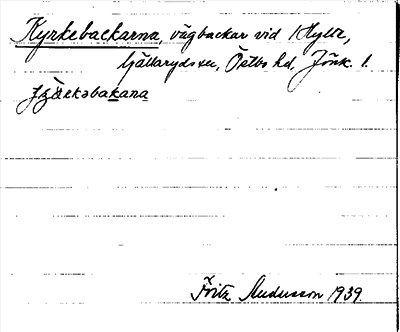 Kyrkebackarna, vägbackar vid Hylte,
Gällaryds sn, Östbo hd, Jönk. l.
Fritz Andersson 1939.